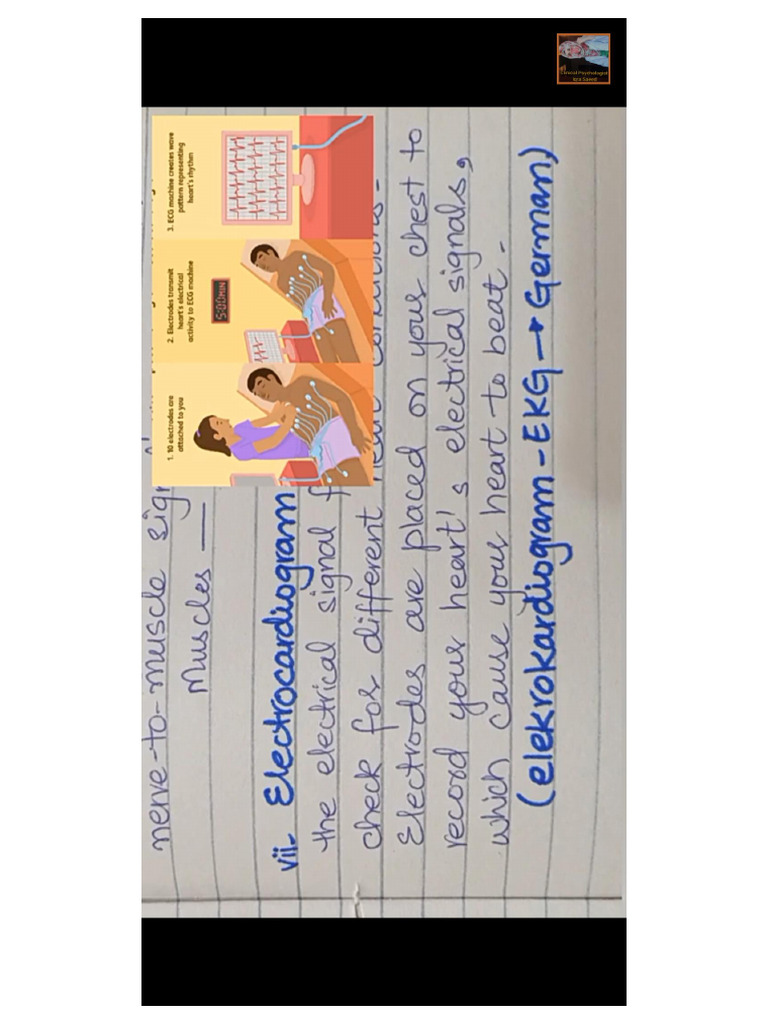 nerve-to-muscle
Muscles
vii. Electrocardiogram
the electrical signal
check for different
Electrodes are placed on your chest to
record your heart's electrical signals,
which cause your heart to beat.
(elekrokardiogram - EKG → German)
1. 10 electrodes are
attached to you
2. Electrodes transmit
heart's electrical
activity to ECG machine
5:00 MIN
3. ECG machine creates wave
pattern representing
heart's rhythm
Clinical Psychologist
Iqra Saeed